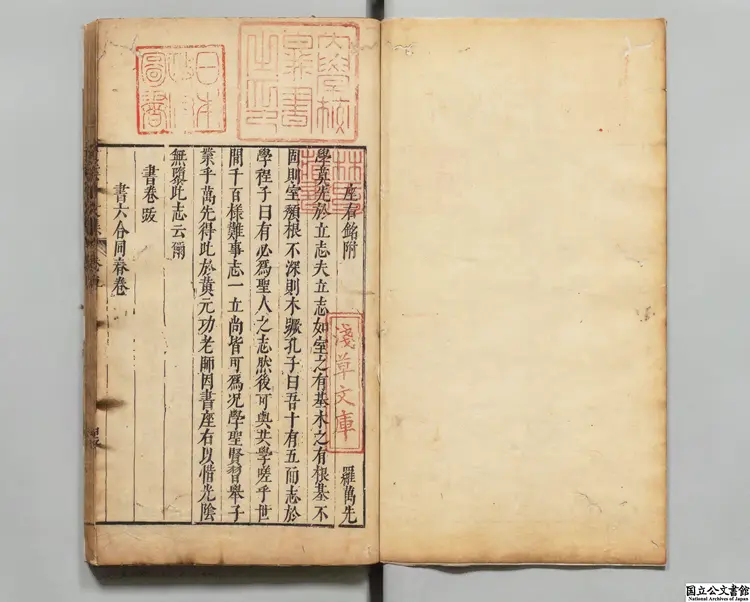 座右銘附
羅萬先
學莫先於立志夫立志如室之有基木之有根基不
固則室頹根不深則木蹶孔子曰吾十有五而志於
學程子曰有必為聖人之志然後可與共學嗟乎世
間千百樣難事志一立尚皆可為况學聖賢習舉子
業乎萬先得此於黄元功老師因書座右以惜光陰
無墮此志云爾
書卷跋
書六合同春卷
淺草文庫
日本
圖書
林氏
藏書
國立公文書館
National Archives of Japan